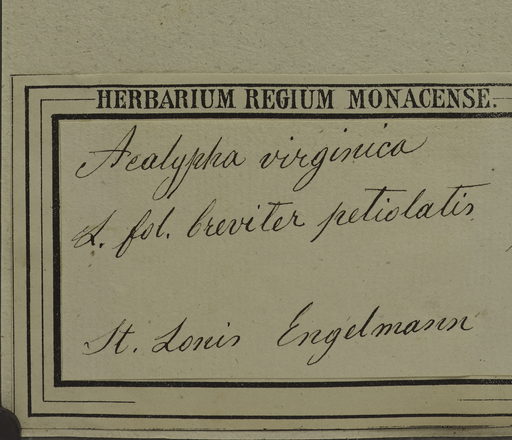 HERBARIUM REGIUM MONACENSE.
Acalypha virginica
L. fol. breviter petiolatis
St. Louis Engelmann